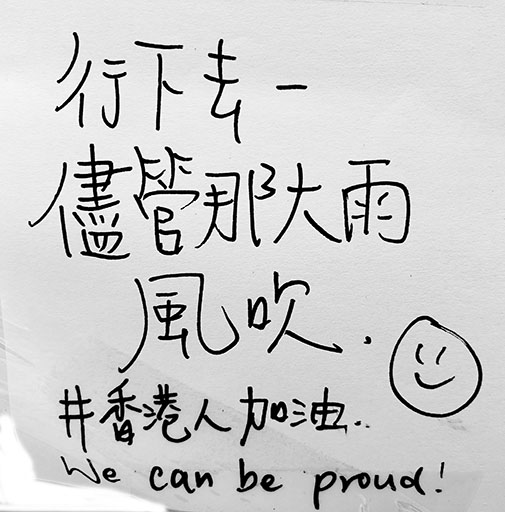 行下去一
儘管那大雨
風吹.
#香港人加油..
We can be proud!